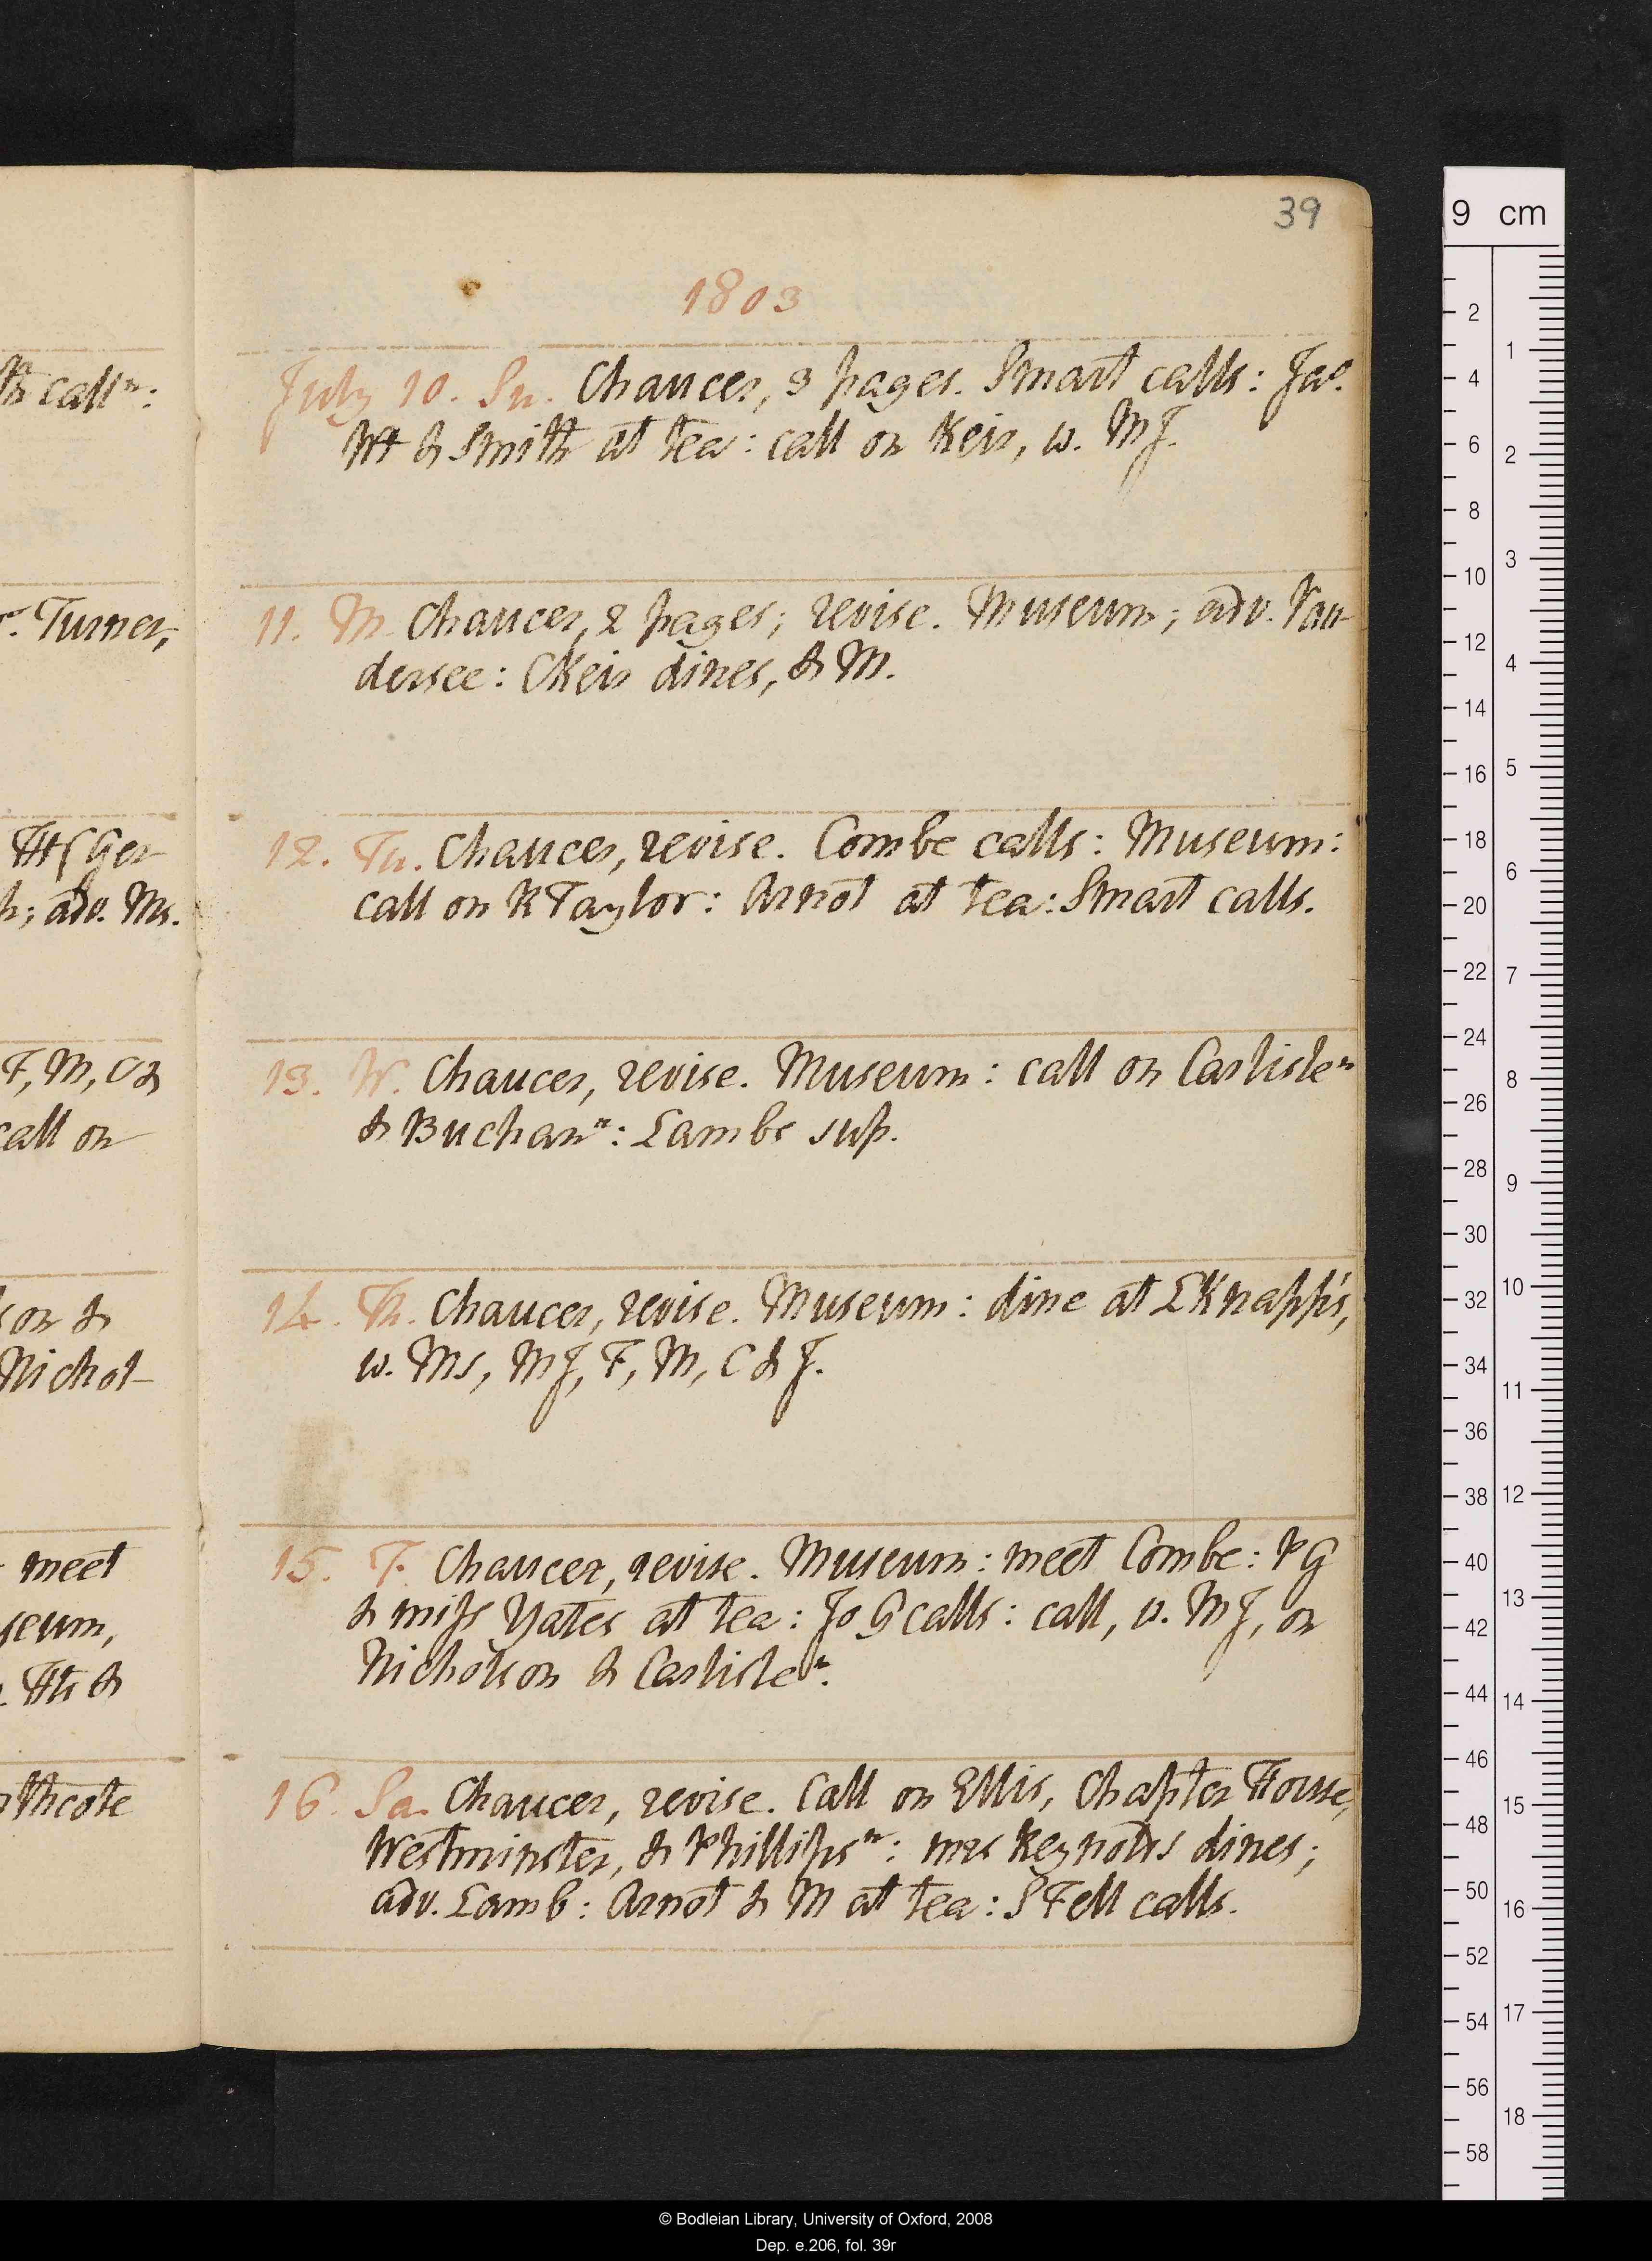 39
1803
July 10. Su. Chaucer, 3 pages. Smart calls: Jas.
Ht & Smith at tea: call on Keir, w. MJ.
11. M. Chaucer, 2 pages; revise. Museum; adv. Van-
dersee: CKeir dines, & M.
12. Tu. Chaucer, revise. Combe calls: Museum:
call on RTaylor: Arnot at tea: Smart calls.
13. W. Chaucer, revise. Museum: call on Carlisle n
& Buchan n: Lambs sup.
14. Th. Chaucer, revise. Museum: dine at LKnapp's,
w. Ms, MJ, F, M, C & J.
15. F. Chaucer, revise. Museum: meet Combe: PG
& miss Yates at tea: Jo G calls: call, w. MJ, on
Nicholson & Carlisle n.
16. Sa. Chaucer, revise. Call on Ellis, Chapter House,
Westminster, & Phillips n: mrs Reynolds dines;
adv. Lamb: Arnot & M at tea: SFell calls.
R call n:
Turner,
TH (Ger
h; adv. Ms.
F, M, C &
call on
son &
Nichol-
meet
seum,
Hs &
thcote
9 cm
2
4
6
8
10
12
14
16
18
20
22
24
26
28
30
32
34
36
38
40
42
44
46
48
50
52
54
56
58
1
2
3
4
5
6
7
8
9
10
11
12
13
14
15
16
17
18
© Bodleian Library, University of Oxford, 2008
Dep. e.206, fol. 39r